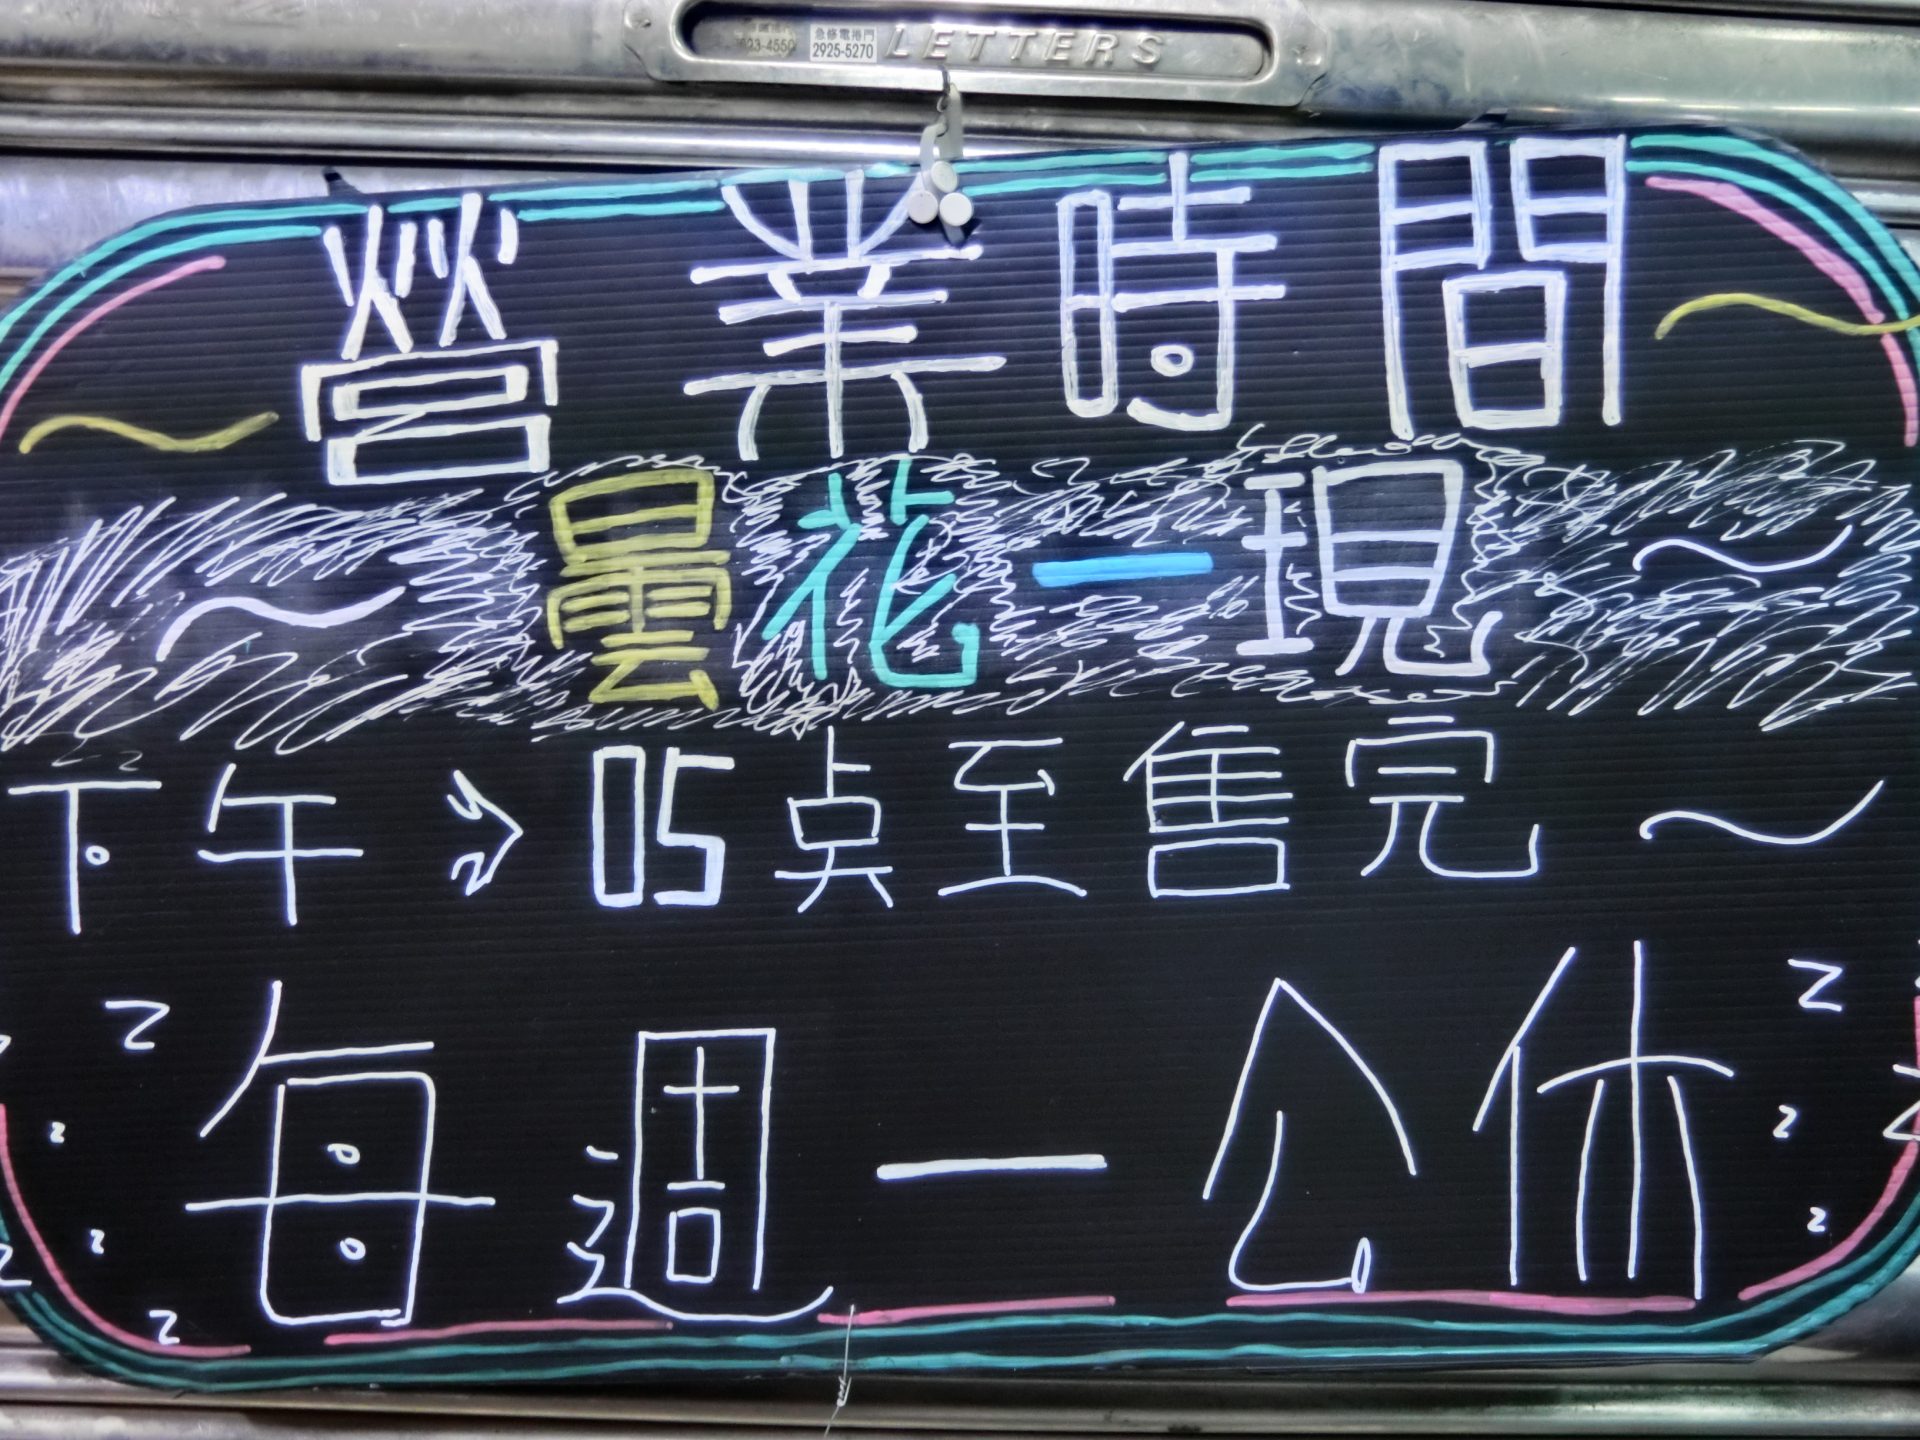 急修電捲門
2925-5270
LETTERS
營業時間
~曇花一現~
下午→05点至售完~
每週一公休